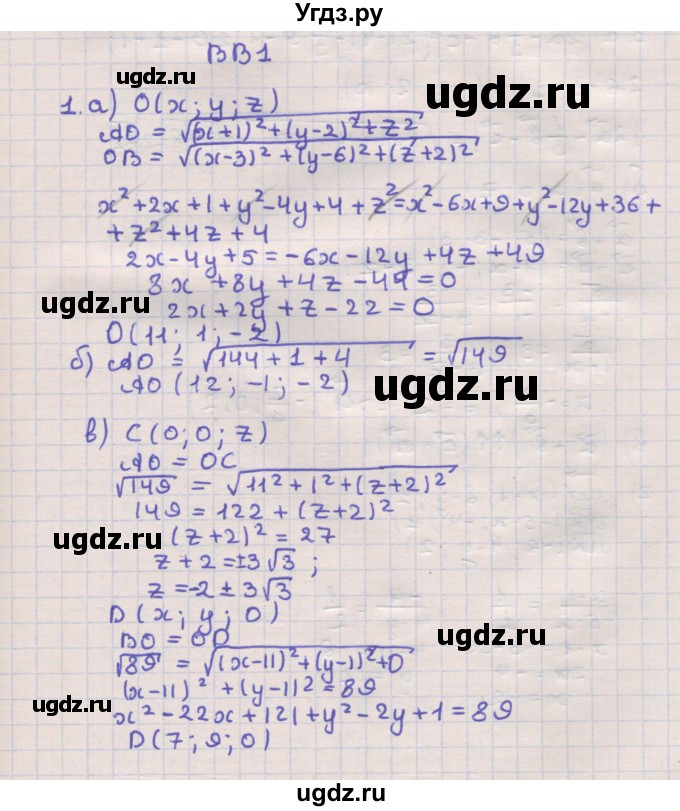 Угдз.ру
ВВ1
1. а) O(x; y; z)
AO = √(x+1)²+(y-2)²+z²
OB = √(x-3)²+(y-6)²+(z+2)²
x²+2x+1+y²-4y+4+z²=x²-6x+9+y²-12y+36+
+z²+4z+4
2x-4y+5=-6x-12y+4z+49
8x+8y+4z-44=0
2x+2y+z-22=0
O(11; 1; -2)
б) AO = √144+1+4 = √149
AO (12; -1; -2)
в) C(0; 0; z)
AO = OC
√149 = √11²+1²+(z+2)²
149 = 122+(z+2)²
(z+2)² = 27
z+2=±3√3;
z=-2±3√3
D(x; y; 0)
BO = OD
√89 = √(x-11)²+(y-1)²+0
(x-11)²+(y-1)²=89
x²-22x+121+y²-2y+1=89
D(7; 9; 0)
ugdz.ru
ugdz.ru
ugdz.ru
ugdz.ru
ugdz.ru
ugdz.ru
ugdz.ru
ugdz.ru
ugdz.ru